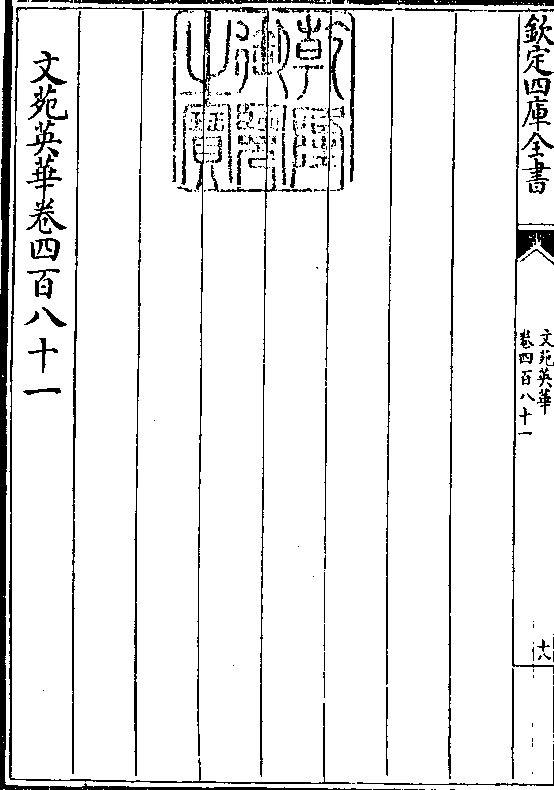 欽定四庫全書
文苑英華
卷四百八十一
十八
乾隆
御覽
之寶
文苑英華卷四百八十一